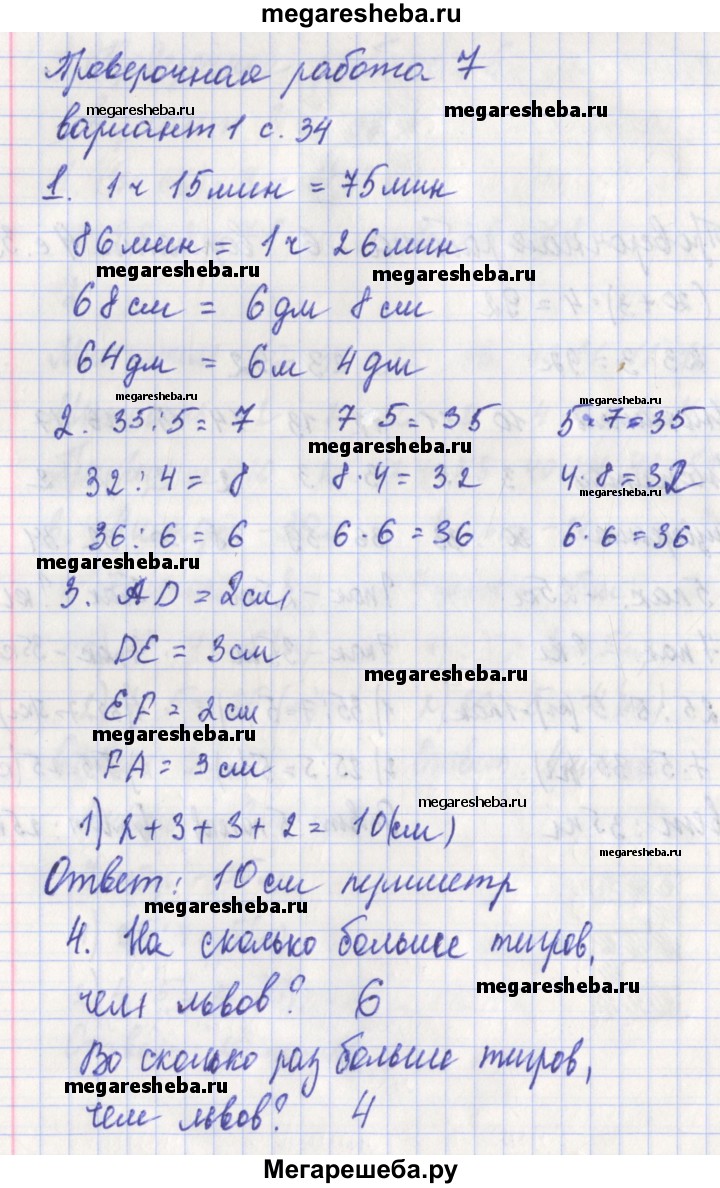 megaresheba.ru
Проверочная работа 7
megaresheba.ru megaresheba.ru
вариант 1 с. 34
1. 1 ч 15 мин = 75 мин
86 мин = 1 ч 26 мин
megaresheba.ru megaresheba.ru
68 см = 6 дм 8 см
64 дм = 6 м 4 дм
megaresheba.ru megaresheba.ru
2. 35 : 5 = 7 7 · 5 = 35 5 · 7 = 35
megaresheba.ru
32 : 4 = 8 8 · 4 = 32 4 · 8 = 32
megaresheba.ru
36 : 6 = 6 6 · 6 = 36 6 · 6 = 36
megaresheba.ru
3. AD = 2 см,
DE = 3 см
megaresheba.ru
EF = 2 см
megaresheba.ru
FA = 3 см
megaresheba.ru
1) 2 + 3 + 3 + 2 = 10 (см)
megaresheba.ru
Ответ: 10 см периметр
megaresheba.ru
4. На сколько больше тигров,
чем львов? 6
megaresheba.ru
Во сколько раз больше тигров,
megaresheba.ru
чем львов? 4
Мегарешеба.ру